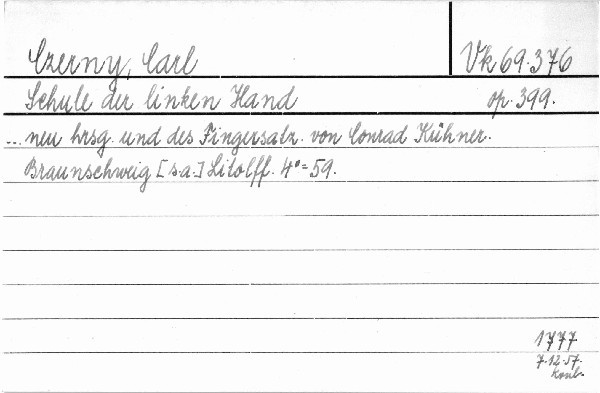 Czerny, Carl Vk 69.376
Schule der linken Hand op. 399.
... neu hrsg. und des Fingersatz. von Conrad Kühner.
Braunschweig [s.a.] Litolff. 4°=59.
1777
7.12.57.